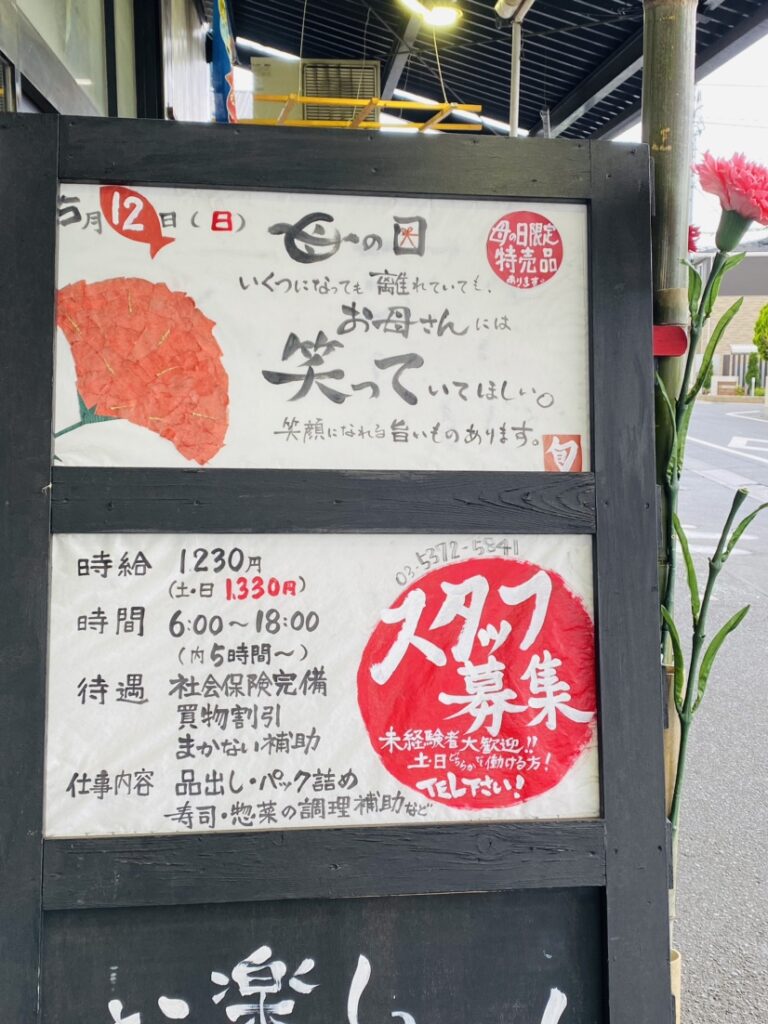 5月12日(日)
母の日
母の日限定
特売品
あります。
いくつになっても離れていても、
お母さんには
笑っていてほしい。
笑顔になれる旨いものあります。
旬
時給 1230円
(土・日 1,330円)
時間 6:00〜18:00
(内5時間〜)
待遇 社会保険完備
買物割引
まかない補助
仕事内容 品出し・パック詰め
寿司・惣菜の調理補助など
03-5372-5841
スタッフ
募集
未経験者大歓迎!!
土・日どちらかを働ける方!
TEL下さい!
楽し